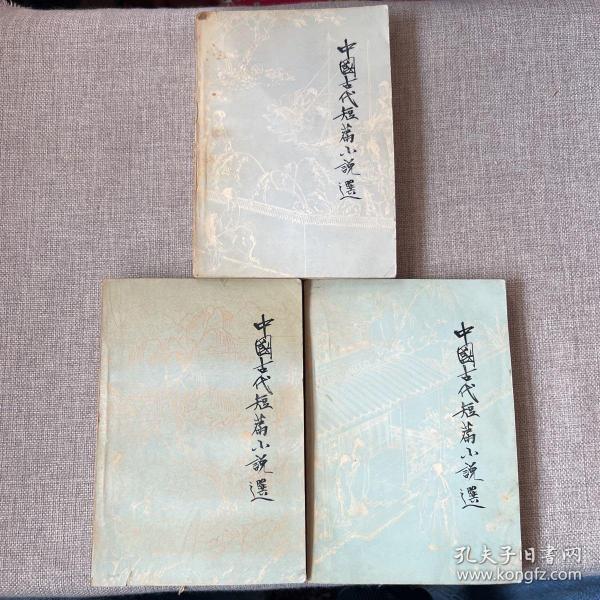 中國古代短篇小説選
中國古代短篇小説選
中國古代短篇小説選
孔夫子旧书网
www.kongfz.com